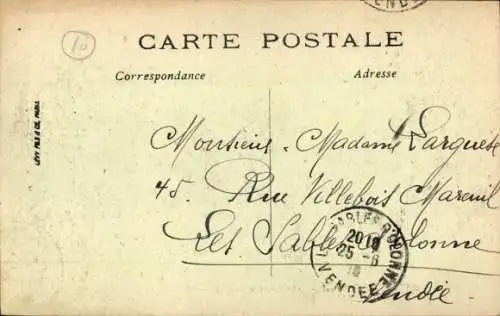 VENDÉE
10
CARTE POSTALE
Correspondance Adresse
LÉVY FILS & CIE, PARIS
Monsieur. Madame Larguese
45. Rue Villebois Mareuil
Les Sables d'Olonne
LES SABLES D'OLONNE
20 10
25 - 6
VENDÉE
Vendée